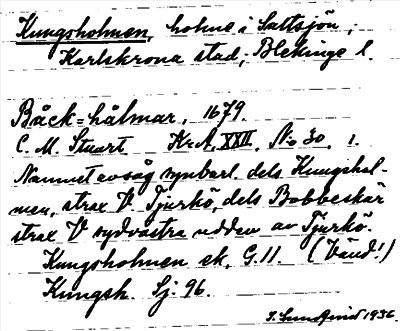 Kungsholmen, holme i Saltsjön,
Karlskrona stad, Blekinge l.
Båck=hålmar, 1679.
C. M. Stuart KrA, XXII, No 30, 1.
Namnet avsåg synbarl. dels Kungshol-
men, strax V. Tjurkö, dels Bobbeskär
strax V sydvästra udden av Tjurkö.
Kungsholmen ek. G. 11. (Vänd!)
Kungsh. Sj. 96.
1936.